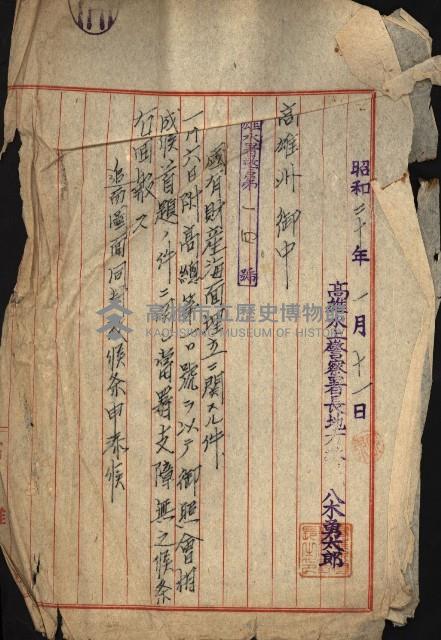 昭和二十年一月十一日
高雄水上警察署長地方
八木勇太郎
高雄州御中
雄水署警第一四號
國有財産海面埋立ニ関スル件
一月六日附高總第 號ヲ以テ御照會相
成候首題ノ件ニ 當署支障無之候条
回報ス
追而圖面同封 候条申添候
高雄市立歷史博物館
KAOHSIUNG MUSEUM OF HISTORY